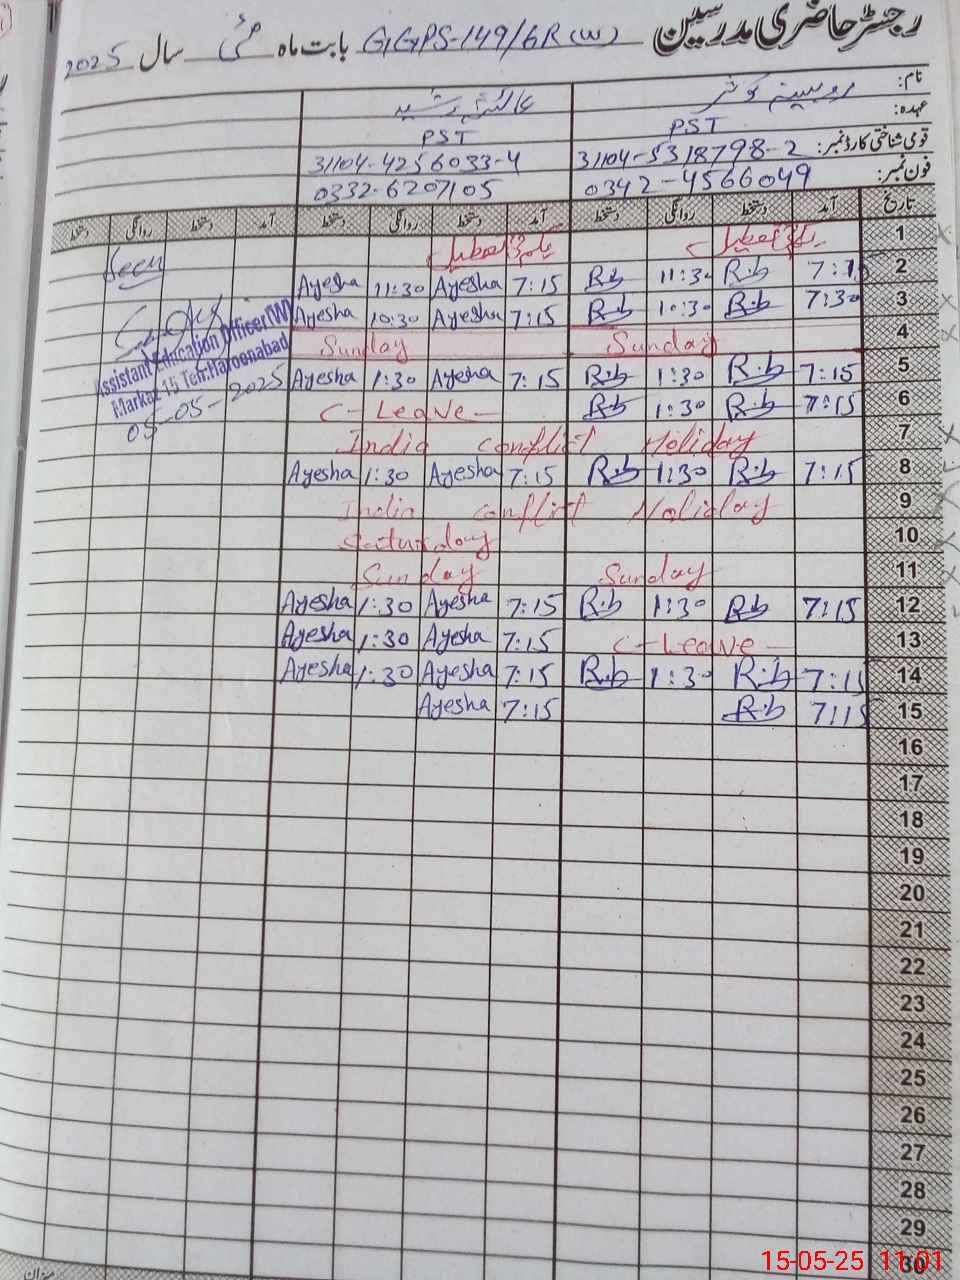 رجسٹر حاضری مدرسین GGPS-149/6R(W) بابت ماہ مئی سال 2025
نام: روبینہ کوثر عائشہ رشید
عہدہ: PST PST
قومی شناختی کارڈ نمبر: 31104-5318798-2 31104-4256033-4
فون نمبر: 0342-4566049 0332-6207105
تاریخ آمد دستخط روانگی دستخط آمد دستخط روانگی دستخط آمد دستخط روانگی دستخط
1 یکم مئی تعطیل یکم مئی تعطیل
2 7:15 R.b 11:30 R.b 7:15 Ayesha 11:30 Ayesha Seen
3 7:30 R.b 10:30 R.b 7:15 Ayesha 10:30 Ayesha
4 Sunday Sunday
Assistant Education Officer (W)
Markaz 15 Teh: Haroonabad
05-05-2025
5 7:15 R.b 1:30 R.b 7:15 Ayesha 1:30 Ayesha
6 7:15 R.b 1:30 R.b C-Leave-
7 India conflict Holiday
8 7:15 R.b 1:30 R.b 7:15 Ayesha 1:30 Ayesha
9 India conflict Holiday
10 Saturday
11 Sunday Sunday
12 7:15 R.b 1:30 R.b 7:15 Ayesha 1:30 Ayesha
13 C-Leave- 7:15 Ayesha 1:30 Ayesha
14 7:15 R.b 1:30 R.b 7:15 Ayesha 1:30 Ayesha
15 7:15 R.b 7:15 Ayesha
16
17
18
19
20
21
22
23
24
25
26
27
28
29
30
میزان
15-05-25 11:01